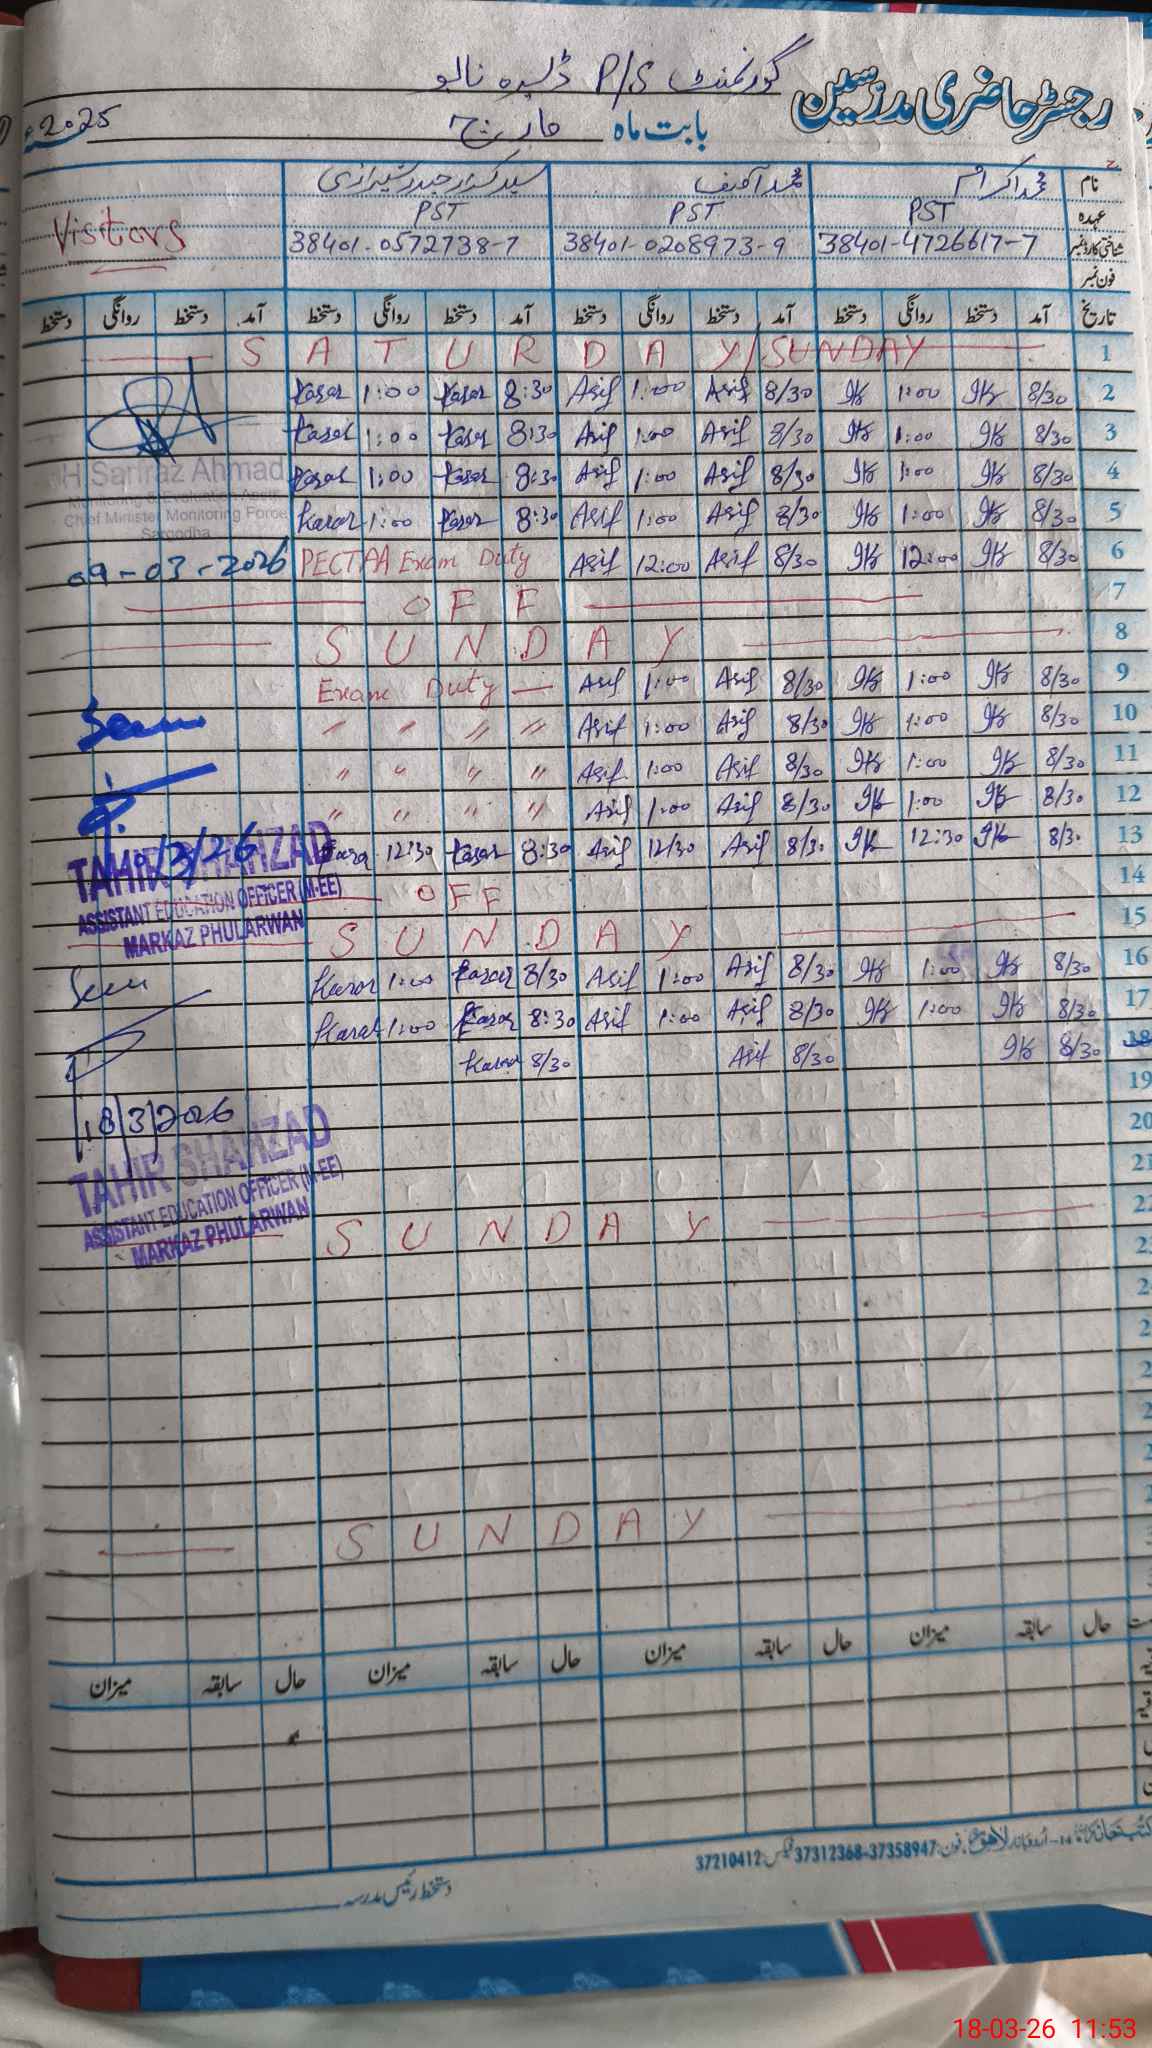 گورنمنٹ P/S ڈیرہ نالو
رجسٹر حاضری مدرسین
بابت ماہ مارچ 2025
نام محمد اکرام محمد آصف سید کرار حیدر شیرازی
عہدہ PST PST PST Visitors
شناختی کارڈ نمبر 38401-4726617-7 38401-0208973-9 38401-0572738-7
فون نمبر
تاریخ آمد دستخط روانگی دستخط آمد دستخط روانگی دستخط آمد دستخط روانگی دستخط آمد دستخط روانگی دستخط
1 SATURDAY/SUNDAY
Karar 1:00 Karar 8:30 Asif 1:00 Asif 8/30 1:00 8/30 2
Karar 1:00 Karar 8:30 Asif 1:00 Asif 8/30 1:00 8/30 3
H.Sarfraz Ahmad
Karar 1:00 Karar 8:30 Asif 1:00 Asif 8/30 1:00 8/30 4
Monitoring & Evaluation Asstt.
Chief Minister Monitoring Force
Sargodha
Karar 1:00 Karar 8:30 Asif 1:00 Asif 8/30 1:00 8/30 5
09-03-2026 PECTAA Exam Duty Asif 12:00 Asif 8/30 12:00 8/30 6
OFF 7
SUNDAY 8
Exam Duty — Asif 1:00 Asif 8/30 1:00 8/30 9
" " " " Asif 1:00 Asif 8/30 1:00 8/30 10
" " " " Asif 1:00 Asif 8/30 1:00 8/30 11
" " " " Asif 1:00 Asif 8/30 1:00 8/30 12
Karar 12:30 Karar 8:30 Asif 12/30 Asif 8/30 12:30 8/30 13
TAHIR SHAHZAD
ASSISTANT EDUCATION OFFICER (M-EE)
MARKAZ PHULARWAN
OFF 14
SUNDAY 15
Karar 1:00 Karar 8/30 Asif 1:00 Asif 8/30 1:00 8/30 16
Karar 1:00 Karar 8:30 Asif 1:00 Asif 8/30 1:00 8/30 17
Karar 8/30 Asif 8/30 8/30 18
19
18/3/2026
20
TAHIR SHAHZAD
ASSISTANT EDUCATION OFFICER (M-EE)
MARKAZ PHULARWAN
21
SUNDAY 22
SUNDAY
حال سابقہ میزان حال سابقہ میزان حال سابقہ میزان حال سابقہ میزان
فون: 37312368-37358947 فیکس: 37210412
دستخط رئیس مدرسہ
18-03-26 11:53